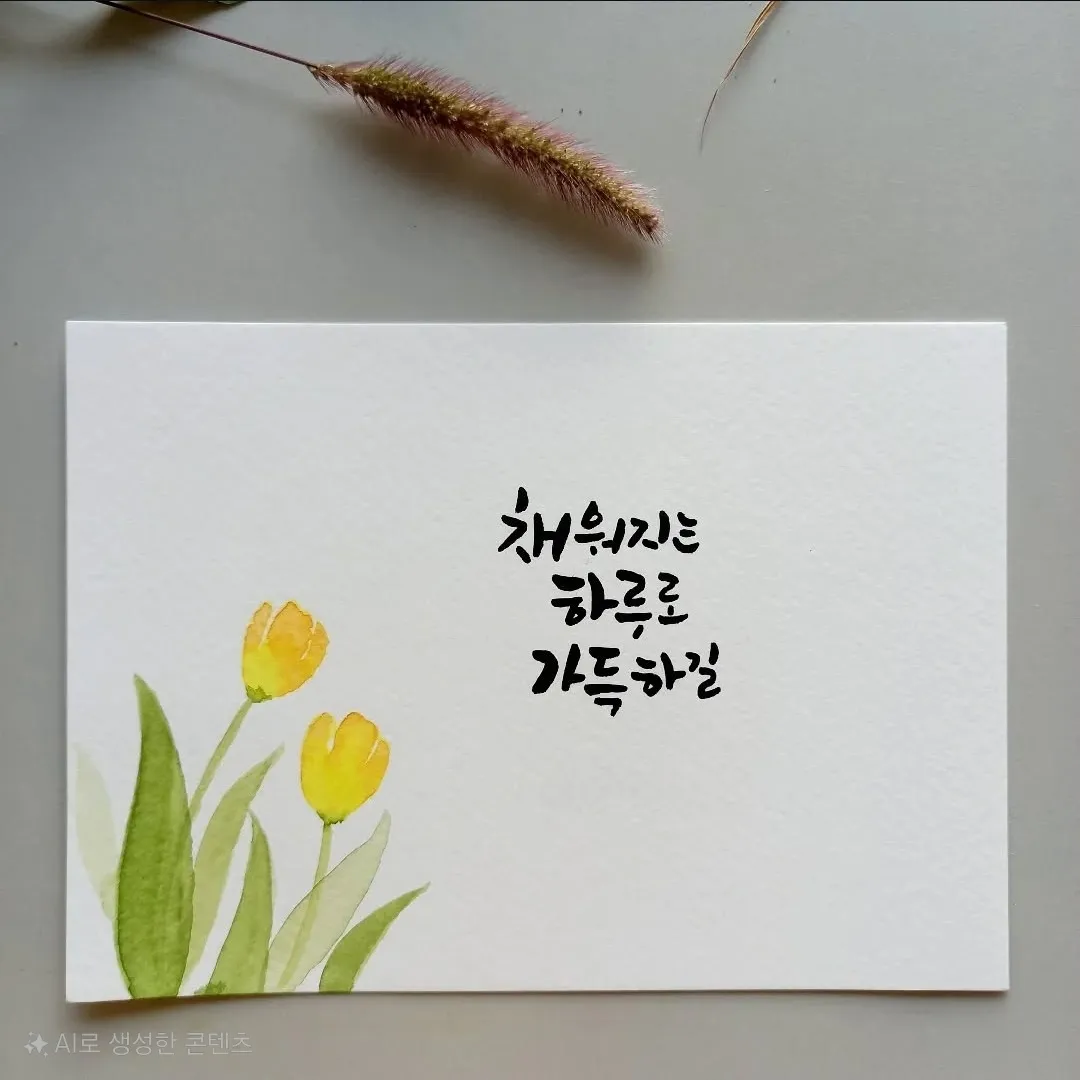 채워지는
하루로
가득하길
AI로 생성한 콘텐츠